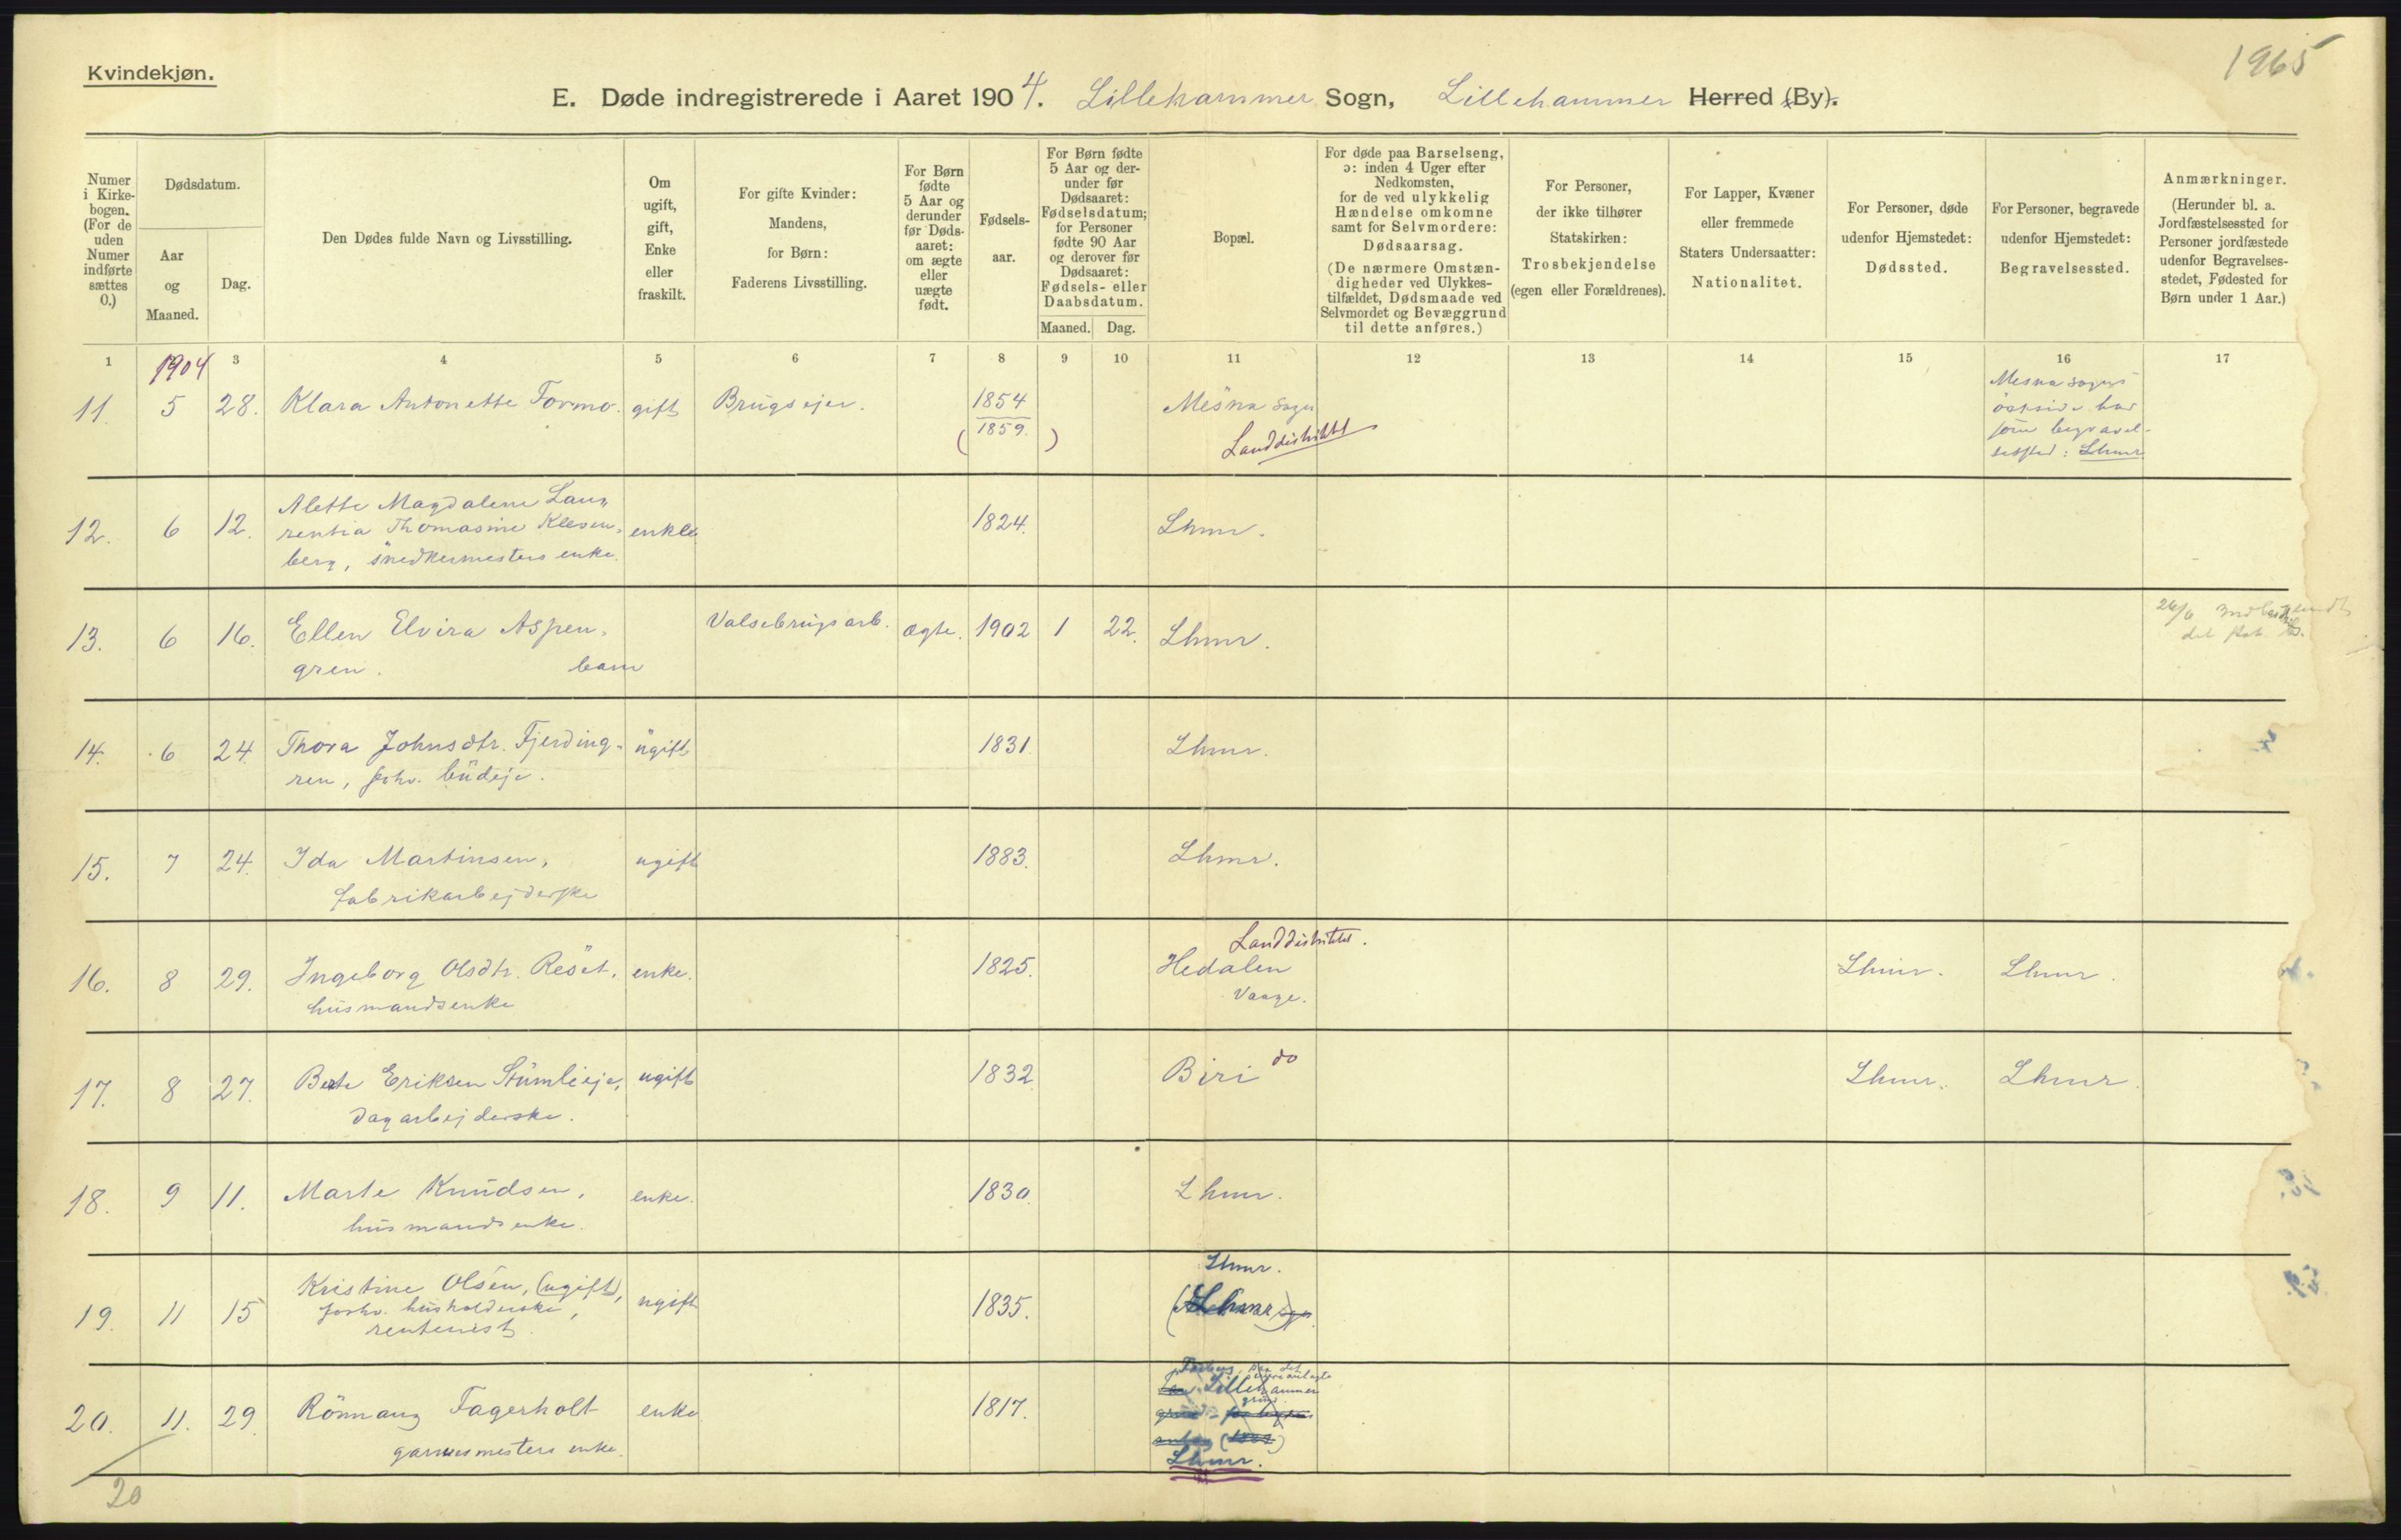 Kvindekjøn.
1965
E. Døde indregistrerede i Aaret 1904. Lillehammer Sogn, Lillehammer Herred (By).
Numer
i Kirke-
bogen.
(For de
uden
Numer
indførte
sættes
0.)
Dødsdatum.
Aar
og
Maaned.
Dag.
Den Dødes fulde Navn og Livsstilling.
Om
ugift,
gift,
Enke
eller
fraskilt.
For gifte Kvinder:
Mandens,
for Børn:
Faderens Livsstilling.
For Børn
fødte
5 Aar og
derunder
før Døds-
aaret:
om ægte
eller
uægte
født.
Fødsels-
aar.
For Børn fødte
5 Aar og der-
under før
Dødsaaret:
Fødselsdatum;
for Personer
fødte 90 Aar
og derover før
Dødsaaret:
Fødsels- eller
Daabsdatum.
Maaned. Dag.
Bopæl.
For døde paa Barselseng,
ɔ: inden 4 Uger efter
Nedkomsten,
for de ved ulykkelig
Hændelse omkomne
samt for Selvmordere:
Dødsaarsag.
(De nærmere Omstæn-
digheder ved Ulykkes-
tilfældet, Dødsmaade ved
Selvmordet og Bevæggrund
til dette anføres.)
For Personer,
der ikke tilhører
Statskirken:
Trosbekjendelse
(egen eller Forældrenes).
For Lapper, Kvæner
eller fremmede
Staters Undersaatter:
Nationalitet.
For Personer, døde
udenfor Hjemstedet:
Dødssted.
For Personer, begravede
udenfor Hjemstedet:
Begravelsessted.
Anmærkninger.
(Herunder bl. a.
Jordfæstelsessted for
Personer jordfæstede
udenfor Begravelses-
stedet, Fødested for
Børn under 1 Aar.)
1 3 4 5 6 7 8 9 10 11 12 13 14 15 16 17
1904
11. 5 28. Klara Antonette Formo. gift Brugsejer. 1854 Mesna sogn
(1859.) Landdistriktet
Mesna sogns
har
som begravel-
sessted: Lhmr
12. 6 12. Alette Magdalene Lau-
rentia Thomasine Klesen- enke 1824. Lhmr.
berg, snedkermesters enke.
13. 6 16. Ellen Elvira Aspen- Valsebrugsarb. ægte. 1902 1 22. Lhmr.
gren. barn
26/6
14. 6 24. Thora Johnsdtr. Fjerding- ugift 1831. Lhmr.
ren, forhv. budeje.
15. 7 24. Ida Martinsen, ugift 1883. Lhmr.
fabrikarbejderske
Landdistriktet.
16. 8 29. Ingeborg Olsdtr. Reset, enke. 1825. Hedalen Lhmr. Lhmr.
husmandsenke Vaage.
17. 8 27. Berte Eriksen Stumlieje, ugift 1832. Biri do Lhmr. Lhmr.
dagarbejderske.
18. 9 11. Marte Knudsen, enke. 1830. Lhmr.
husmandsenke.
19. 11 15 Kristine Olsen, (ugift), ugift 1835. Lhmr.
forhv. husholderske,
rentenist.
20. 11. 29. Rönnaug Fagerholt enke 1817. Lillehammer
garvermesters enke. Lhmr.
20